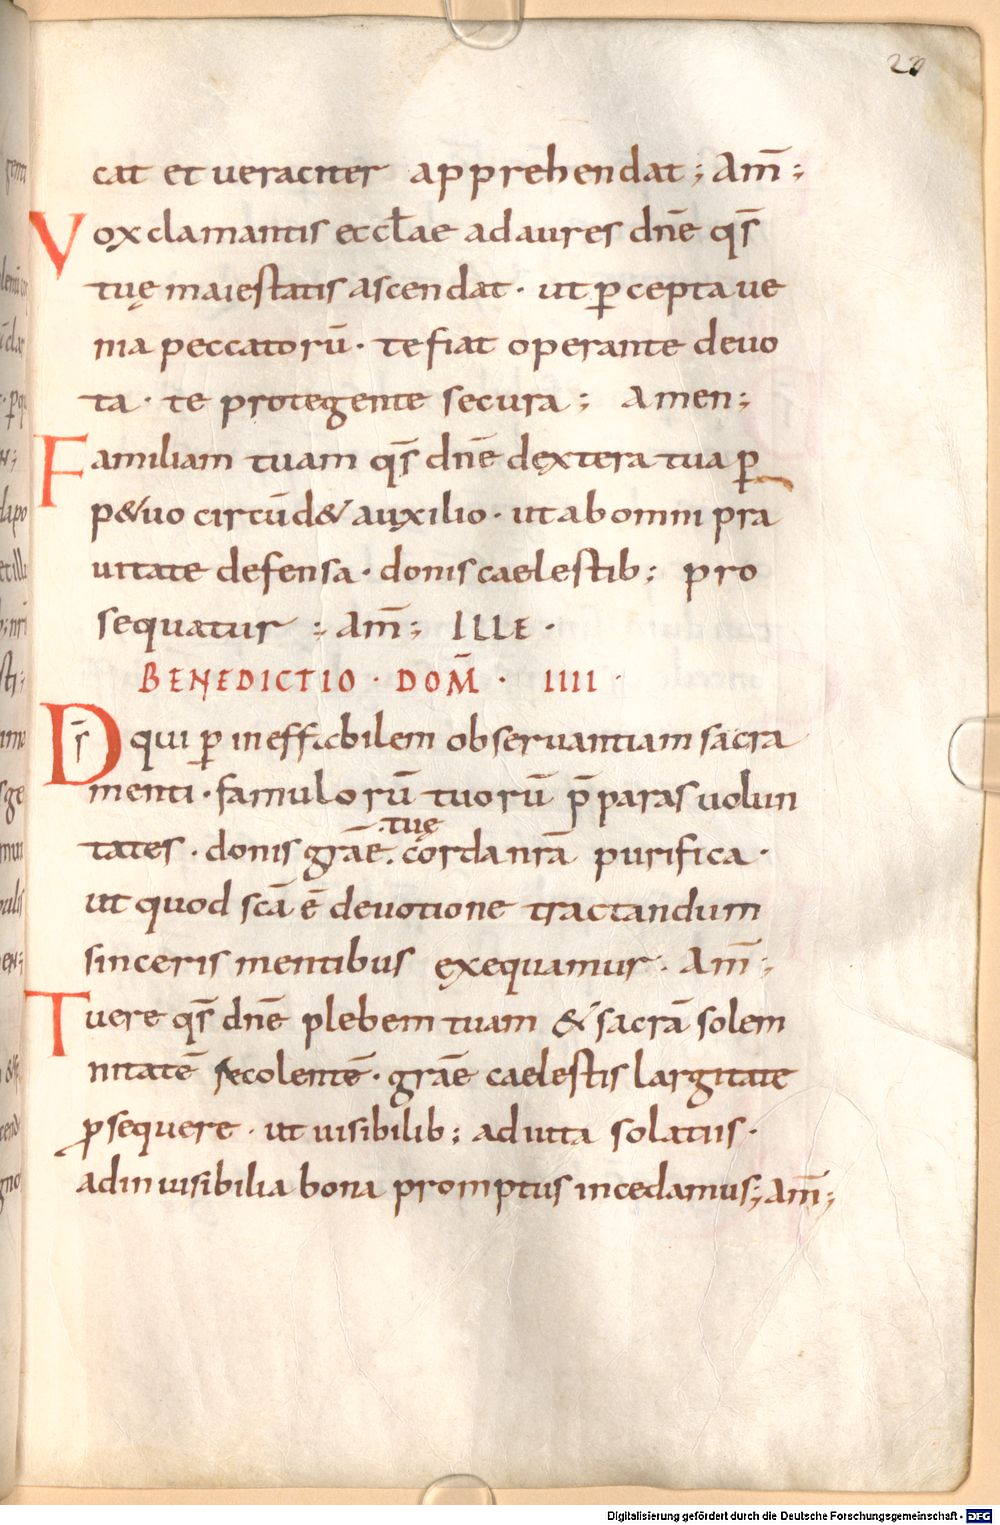 20
cat et ueraciter apprehendat; Am̅;
Vox clamantis eccłae ad aures dn̅e qs̅
tuę maiestatis ascendat· ut ꝑcepta ue
nia peccatorū· te fiat operante deuo
ta· te protegente secura; Amen;
Familiam tuam qs̅ dn̅e dextera tua ꝑ
p&uo circūd& auxilio· ut ab omni pra
uitate defensa· donis caelestib; pro
sequatur; Am̅; ILLE·
BENEDICTIO · DOM̅ · IIII ·
Ds̅ qui ꝑ ineffabilem obseruantiam sacra
menti· famulorū tuorū p̅paras uolun
tates· donis gra̅e· tuę corda nr̅a purifica·
ut quod sc̅a ē deuotione tractandum
sinceris mentibus exequamur· Am̅;
Tuere qs̅ dn̅e plebem tuam & sacra̅ solem
nitatē recolentē· gra̅e caelestis largitate
ꝓsequere· ut uisibilib; adiuta solatiis·
ad inuisibilia bona promptius incedamus; Am̅;
Digitalisierung gefördert durch die Deutsche Forschungsgemeinschaft - DFG